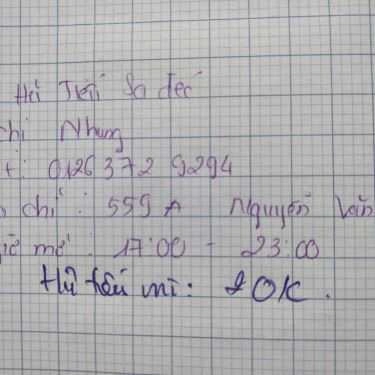 Hủ Tiếu Sa đéc
chị Nhung
t: 0126 372 9294
chỉ : 559 A Nguyễn Văn
giờ mở : 17:00 - 23:00
Hủ tiếu mì: 20K.